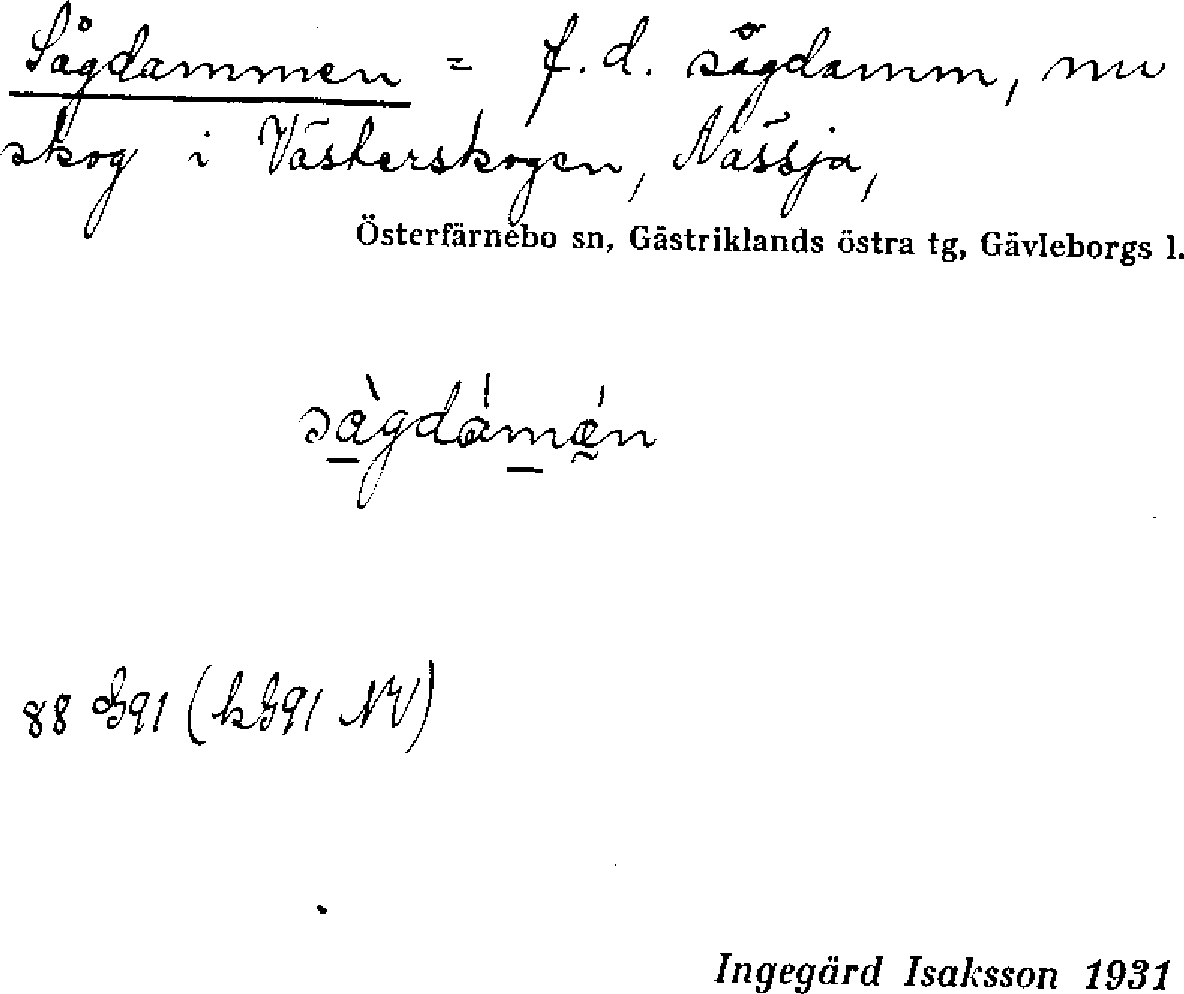 Sågdammen = f. d. sågdamm, nu
skog i Västerskogen, Nässja,
Österfärnebo sn, Gästriklands östra tg, Gävleborgs l.
sàgdámǽn
88 G91 (kG91 NV)
Ingegärd Isaksson 1931